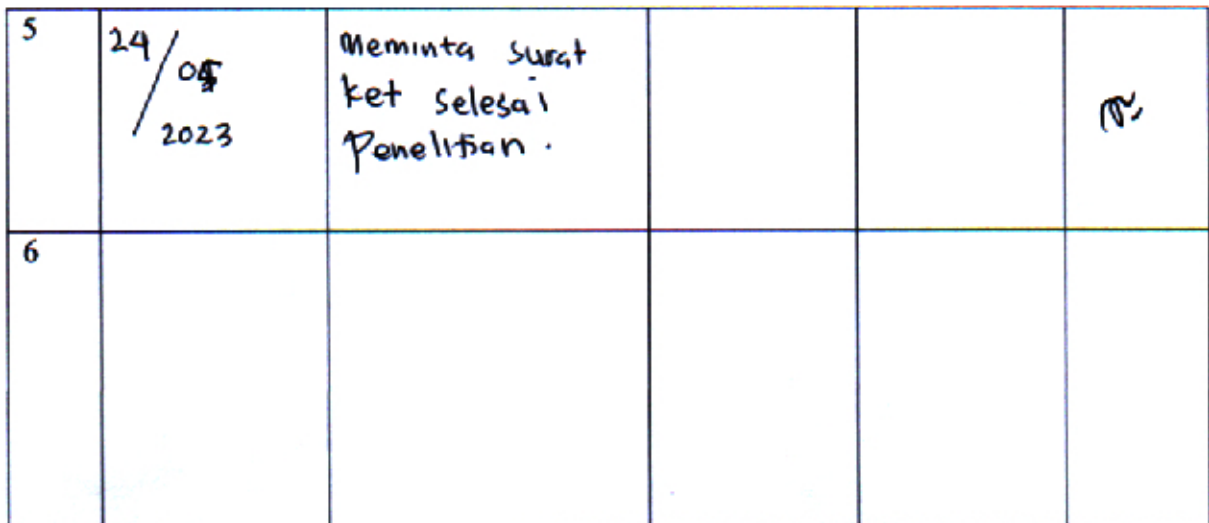 5
24/
2023
Meminta surat
ket selesai
Penelitian.
6